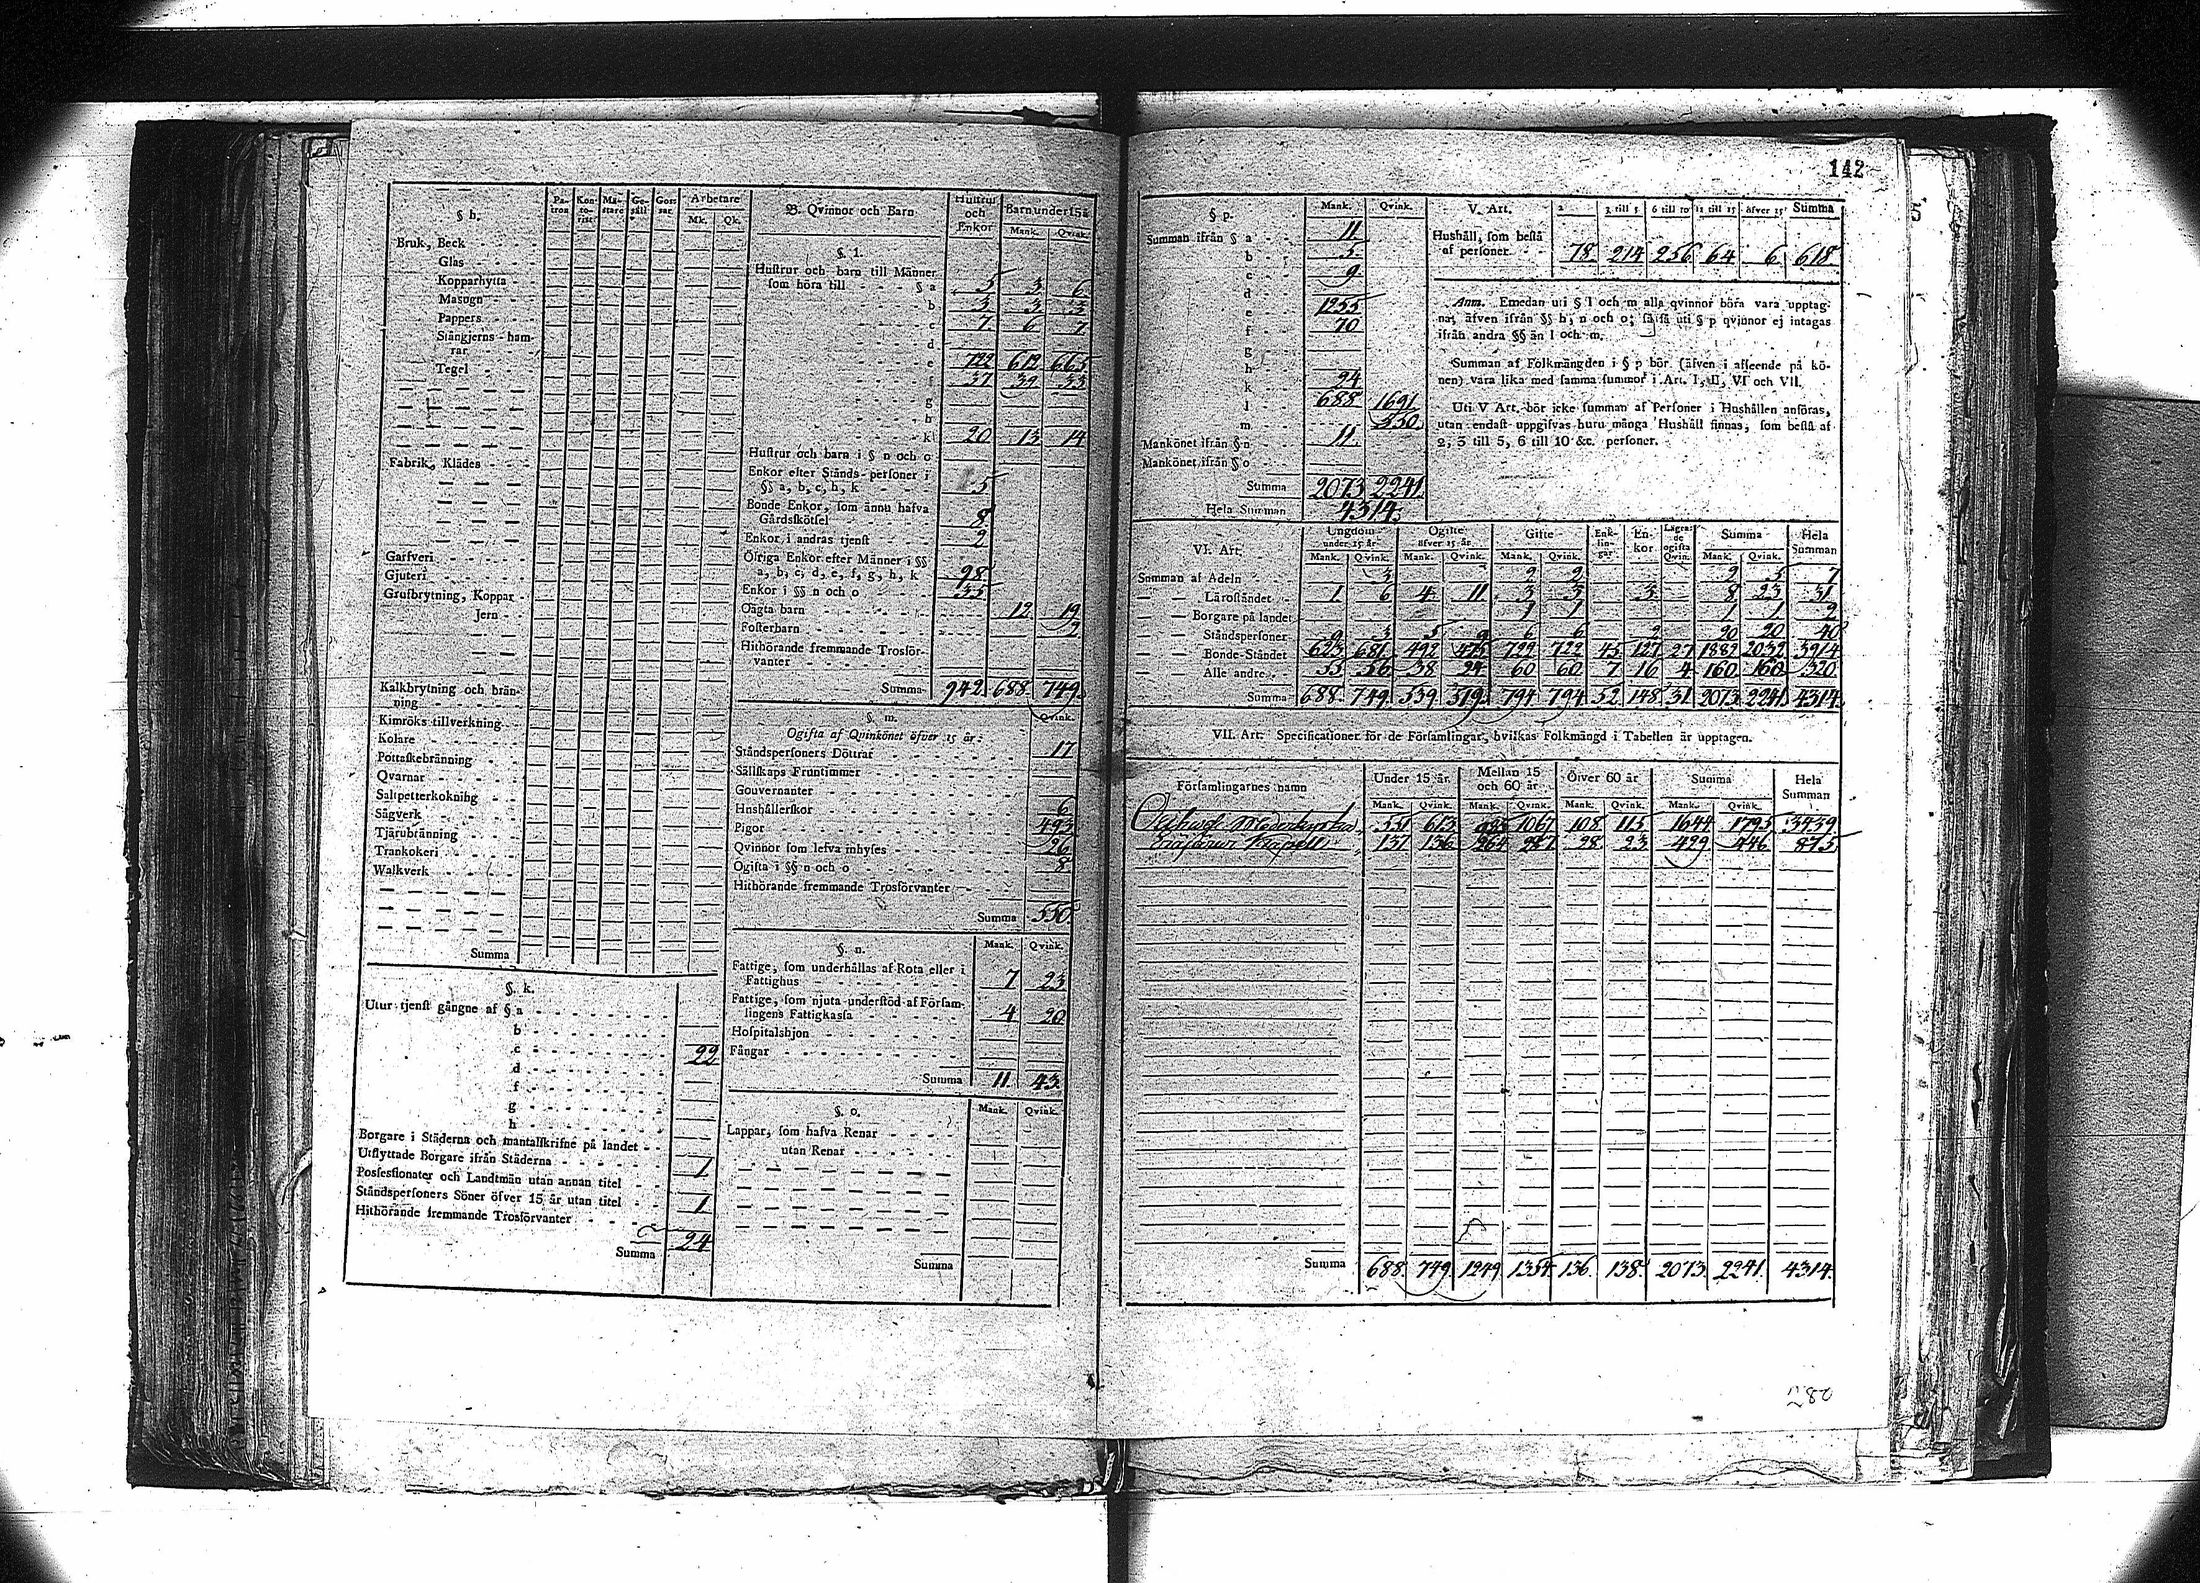 142
§ h.
Pa-tron
Kon-to-rist
Mä-stare
Ge-säll
Gos-sar
Arbetare
Mk. Qk.
Bruk, Beck
Glas
Kopparhytta
Masugn
Pappers
Stångjerns-ham-
rar
Tegel
Fabrik, Klädes
Garfveri
Gjuteri
Grufbrytning, Koppar
Jern
Kalkbrytning och brän-
ning
Kimröks tillverkning
Kolare
Pottaskebränning
Qvarnar
Saltpetterkokning
Sågverk
Tjärubränning
Trankokeri
Walkverk
Summa
§. k.
Utur tjenst gångne af § a
b
c 22
d
f
g
h
Borgare i Städerna och mantalskrifne på landet
Utflyttade Borgare ifrån Städerna
Possessionater och Landtmän utan annan titel 1
Ståndspersoners Söner öfver 15 år utan titel 1
Hithörande fremmande Trosförvanter
Summa 24
B. Qvinnor och Barn
Hustrur och Enkor
Barn under 15 å
Mank. Qvink.
§. l.
Hustrur och barn till Männer
som höra till § a 5 3 6
b 3 3 3
c 7 6 7
d
e 722 612 665
f 37 39 33
g
h
k 20 13 14
Hustrur och barn i § n och o
Enkor efter Stånds-personer i
§§ a, b, c, h, k 5
Bonde Enkor, som ännu hafva
Gårdsskötsel 8
Enkor i andras tjenst 2
Öfriga Enkor efter Männer i §§
a, b, c, d, e, f, g, h, k 98
Enkor i §§ n och o 35
Oägta barn 12 19
Fosterbarn 2
Hithörande fremmande Trosför-
vanter
Summa 942 688 749
§. m.
Qvink.
Ogifta af Qvinkönet öfver 15 år:
Ståndspersoners Döttrar 17
Sällskaps Fruntimmer
Gouvernanter
Hushållerskor 6
Pigor 493
Qvinnor som lefva inhyses 26
Ogifta i §§ n och o 8
Hithörande fremmande Trosförvanter
Summa 550
§. n.
Mank. Qvink.
Fattige, som underhållas af Rota eller i
Fattighus 7 23
Fattige, som njuta understöd af Försam-
lingens Fattigkassa 4 20
Hospitalshjon
Fångar
Summa 11 43
§. o.
Mank. Qvink.
Lappar, som hafva Renar
utan Renar
Summa
§ p.
Mank. Qvink.
Summan ifrån § a 11
b 5
c 9
d
e 1255
f 70
g
h
k 24
l 688 1691
m 550
Mankönet ifrån § n 11
Mankönet ifrån § o
Summa 2073 2241
Hela Summan 4314
V. Art.
2 3 till 5 6 till 10 11 till 15 öfver 15 Summa
Hushåll, som bestå
af personer 78 214 256 64 6 618
Anm. Emedan uti § l och m alla qvinnor böra vara upptag-
na, äfven ifrån §§ h, n och o; så få uti § p qvinnor ej intagas
ifrån andra §§ än l och m.
Summan af Folkmängden i § p bör (äfven i afseende på kö-
nen) vara lika med samma summor i Art. I, II, VI och VII.
Uti V Art. bör icke summan af Personer i Hushållen anföras,
utan endast uppgifvas huru många Hushåll finnas, som bestå af
2, 3 till 5, 6 till 10 &c. personer.
VI. Art.
Ungdom under 15 år
Ogifte öfver 15 år
Gifte
Enk-lin-gar
En-kor
Lägra-de ogifta Qvin.
Summa
Hela Summan
Mank. Qvink. Mank. Qvink. Mank. Qvink. Mank. Qvink.
Summan af Adeln 3 2 2 2 5 7
Läroståndet 1 6 4 11 3 3 3 8 23 31
Borgare på landet 1 1 1 1 2
Ståndspersoner 9 3 5 9 6 6 2 20 20 40
Bonde-Ståndet 623 681 492 475 722 722 45 127 27 1882 2032 3914
Alle andre 55 56 38 24 60 60 7 16 4 160 160 320
Summa 688 749 539 519 794 794 52 148 31 2073 2241 4314
VII. Art. Specificationer för de Församlingar, hvilkas Folkmängd i Tabellen är upptagen.
Församlingarnes namn
Under 15 år
Mellan 15 och 60 år
Öfver 60 år
Summa
Hela Summan
Mank. Qvink. Mank. Qvink. Mank. Qvink. Mank. Qvink.
551 613 985 1067 108 115 1644 1795 3439
137 136 264 287 28 23 429 446 875
Summa 688 749 1249 1354 136 138 2073 2241 4314